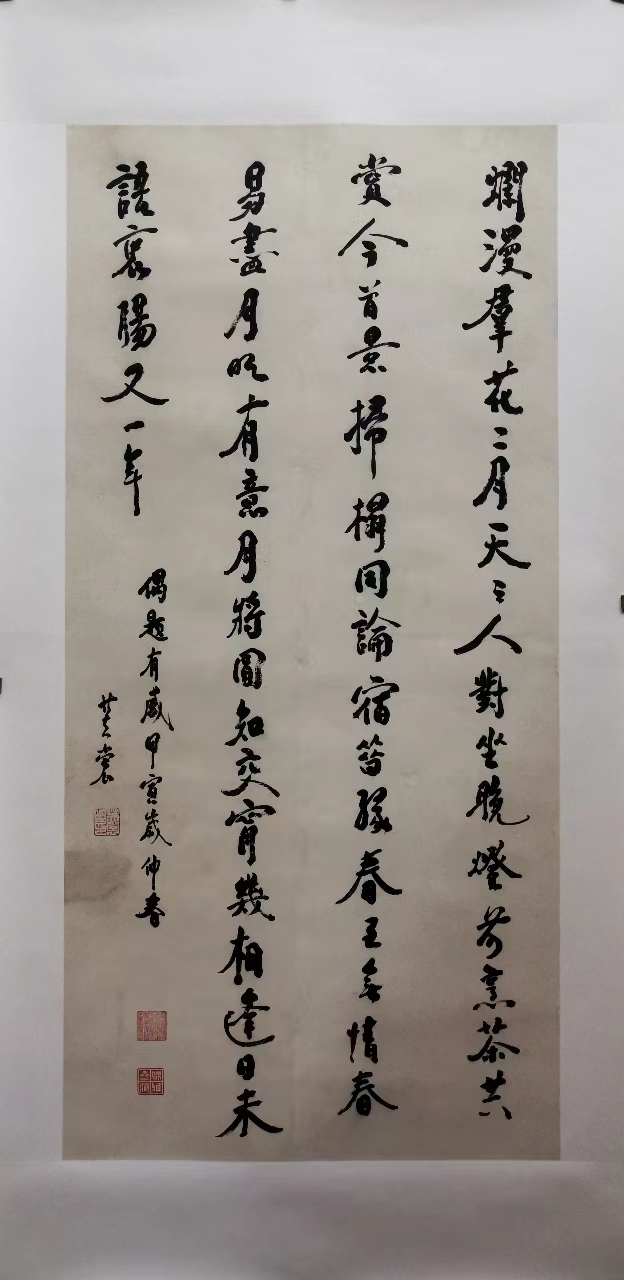 爛漫羣花二月天三人對坐晚燈前烹茶共
賞今首景掃榻同論宿昔緣春至無情春
易盡月明有意月將圓知交甯幾相逢日未
語衷腸又一年
偶題有感甲寅歲仲春
裳